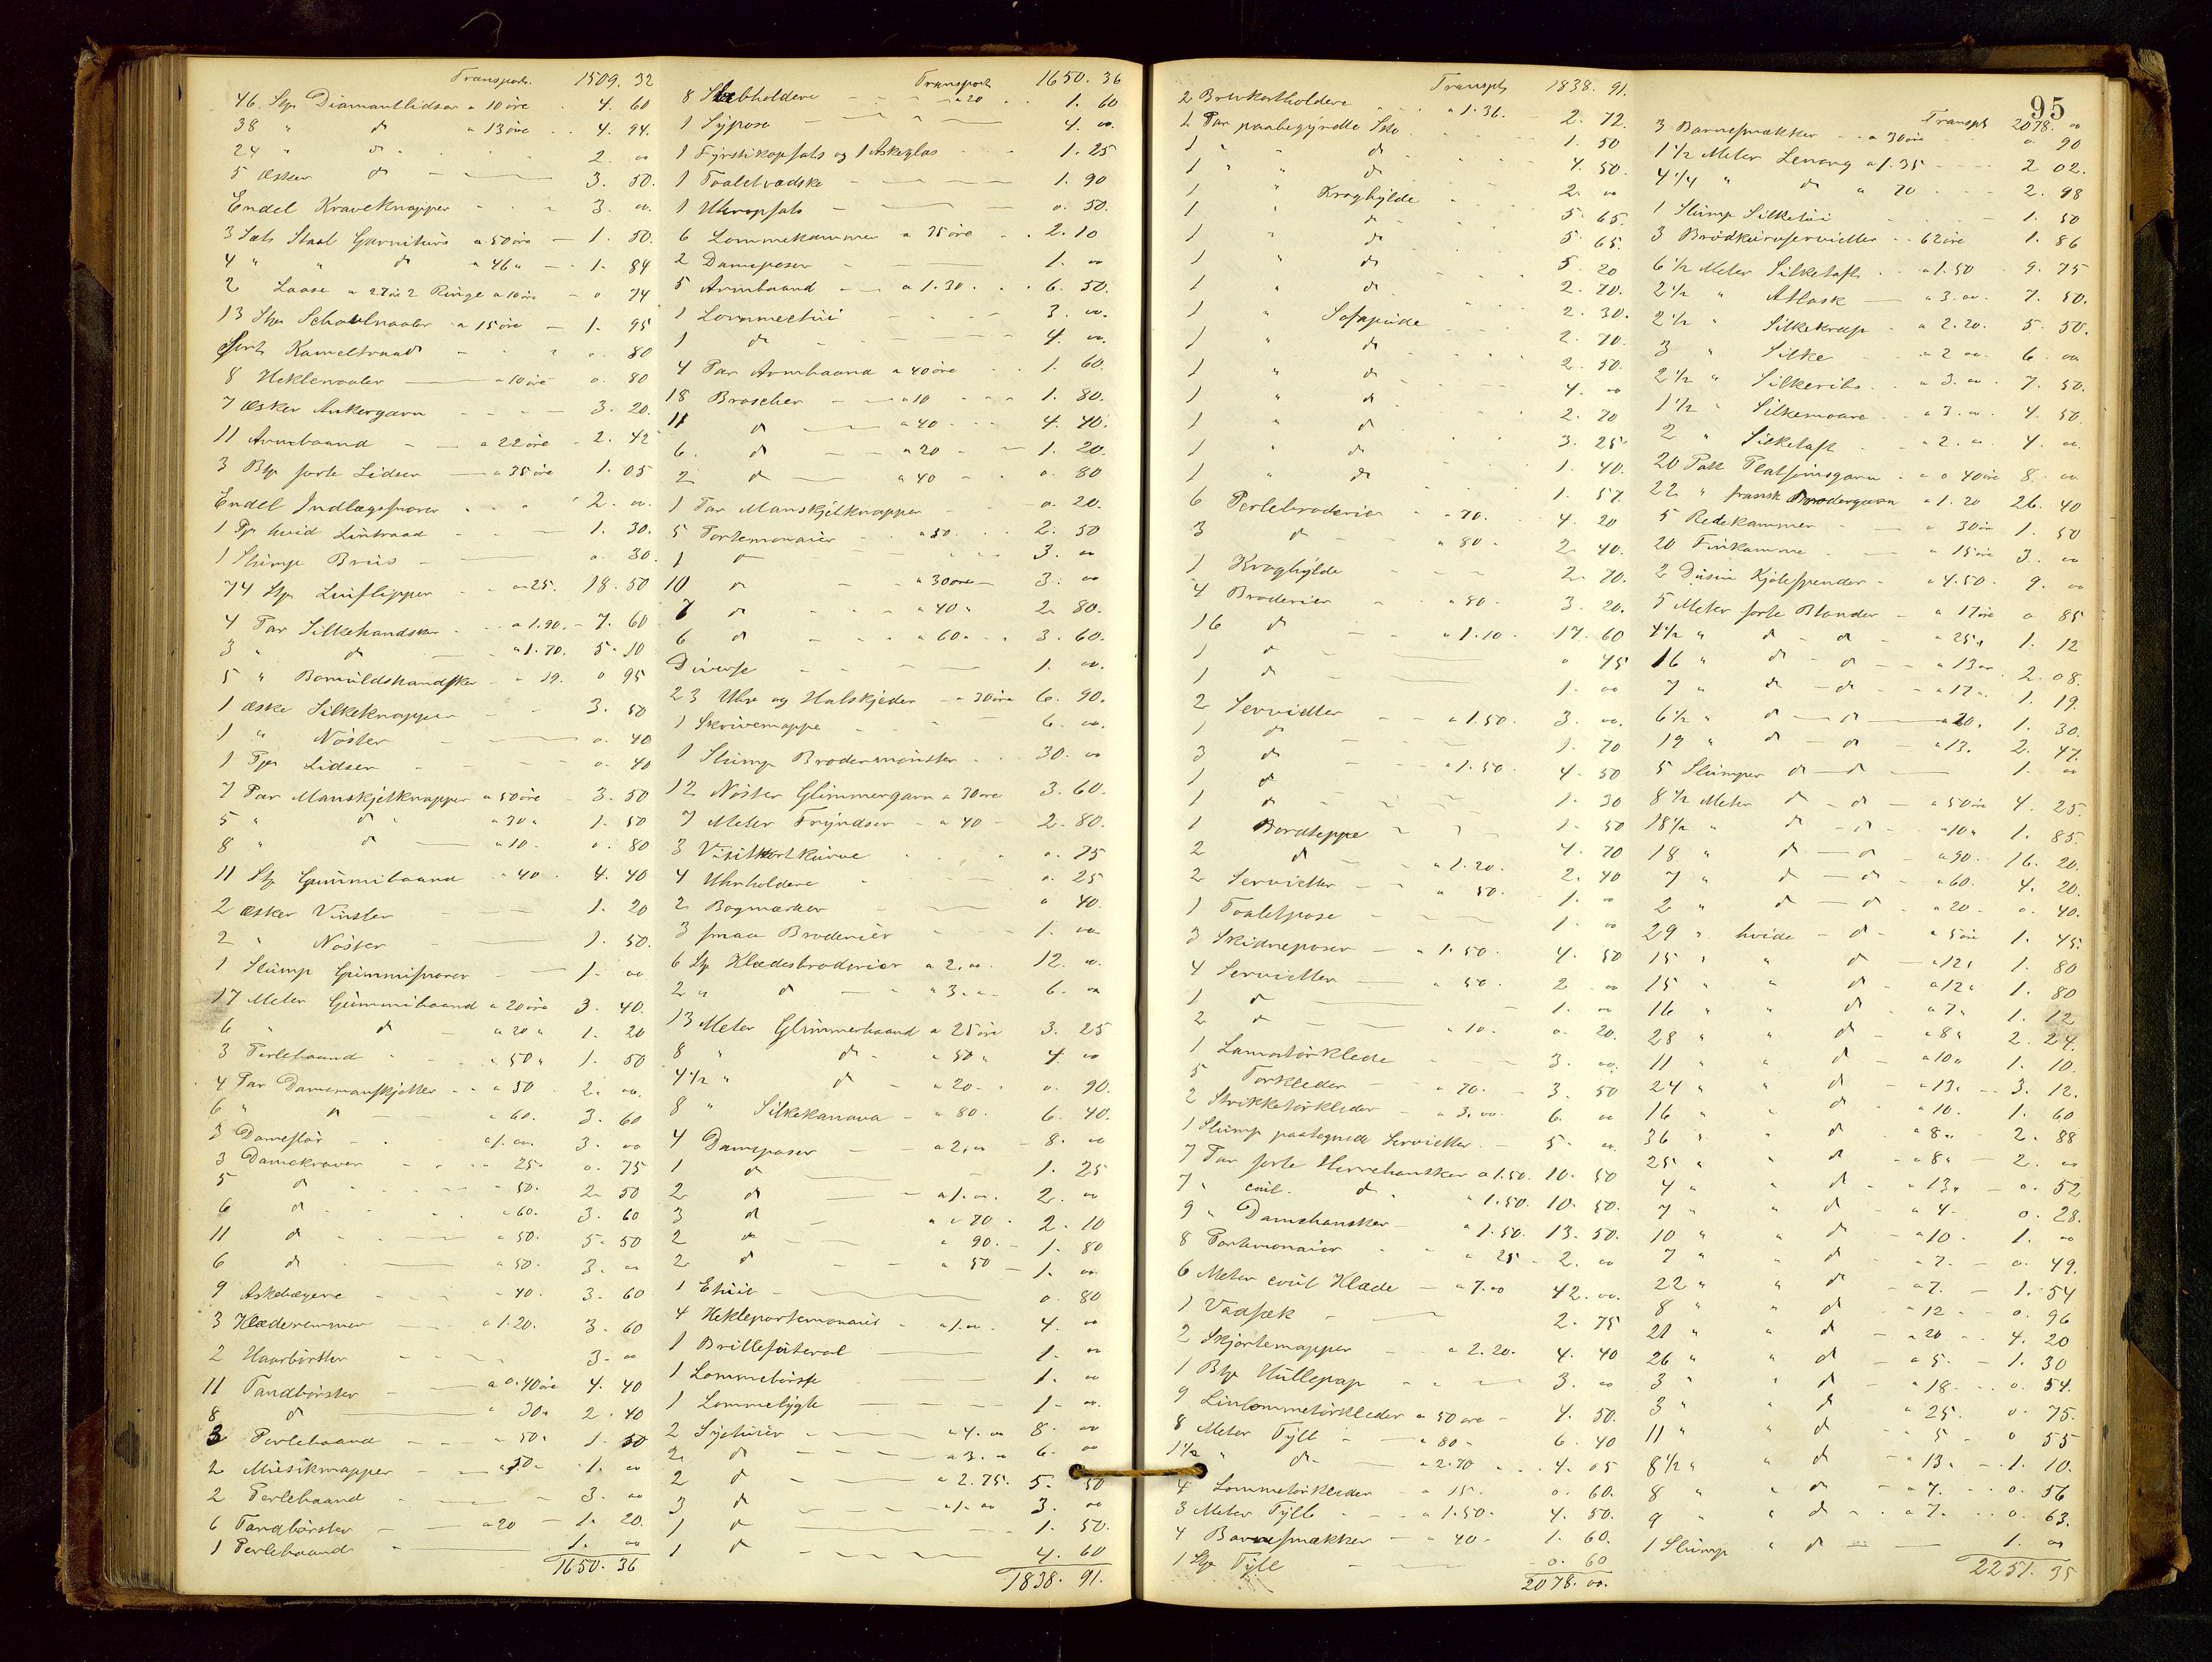 Transport. 1509. 32
46 Stp Diamantlidser a 10 öre 4. 60
38 " d a 13 öre 4. 94.
24 " d 2. 00
5 Æsker d 3. 50.
Endel Kraveknapper 3. 00.
3 Sæt Staal Garniturs a 50 öre 1. 50.
4 " " d a 46 " 1. 84
2 Laase a 27 ör 2 Ringe a 10 öre 0 74
13 Stp a 15 öre 1. 95
Sort Kameltraad 0. 80
8 Heklenaaler a 10 öre 0. 80
7 Æsker Ankergarn 3. 20.
11 Armbaand a 22 öre 2. 42
3 Btp sorte Lidser a 35 öre 1. 05
Endel Indlægssnorer 2. 00.
1 Pp hvid Lintraad 1. 30.
1 Slump Briis 0. 30
74 Stp Linflipper a 25. 18. 50
4 Par Silkehandsker a 1.90. 7. 60
3 " d a 1.70. 5. 10
5 " Bomuldshandsker a 19. 0 95
1 Æske Silkeknapper 3. 50
1 " Nöster 0. 40
1 Pp Lidser 0. 40
7 Par Manskjetknapper a 50 öre 3. 50
5 " d a 30 " 1. 50
8 " d a 10 0. 80
11 Stp Gummibaand a 40 4. 40
2 Æsker Vinster 1. 20
2 " Nöster 1. 50.
1 Slump Gummisnorer 1. 00
17 Meter Gummibaand a 20 öre 3. 40.
6 " d a 20 " 1. 20
3 Perlebaand a 50 " 1. 50
4 Par Damemanskjetter a 50 2. 00.
6 " d a 60. 3. 60
3 Dameslör a 1.00 3. 00
3 Damekraver 25 0. 75
5 d 50. 2. 50
6 d a 60. 3. 60
11 d a 50. 5. 50
6 d a 50. 3. 00
9 Askebægere 40. 3. 60
3 Klæderemmer a 1.20. 3. 60
2 Haarbörster 3. 00
11 Tandbörster a 0.40 öre 4. 40
8 d " 30 " 2. 40
3 Perlebaand " 50 " 1. 50
2 Musikmapper a 50 1. 00
2 Perlebaand 3. 00
6 Tandbörster a 20 1. 20.
1 Perlebaand 1. 00
1650. 36
Transport 1650. 36
8 Slebholdere a 20 1. 60
1 Sypose 4. 00.
1 Fyrstikopsats og 1 Askeglas 1. 25
1 Toaletvædske 1. 90
1 Uhropsats 0. 50.
6 Lommekammer a 35 öre 2. 10
2 Dameposer 1. 00
5 Armbaand a 1.30. 6. 50.
1 Lommeetui 3. 00.
1 d 4. 00.
4 Par Armbaand a 40 öre 1. 60.
18 Broscher a 10 1. 80.
11 d a 40 4. 40.
6 d a 20 1. 20.
2 d a 40 0. 80
1 Par Manskjetknapper 0. 20.
5 Portemonaier a 50 2. 50
1 d 3. 00
10 d a 30 öre 3. 00
7 d a 40 " 2. 80.
6 d a 60 " 3. 60.
Diverse 1. 00.
23 Uhr og Halskjeder a 30 öre 6. 90.
1 Skrivemappe 6. 00.
1 Slump Brodermönster 30. 00
12 Nöster Glimmergarn a 30 öre 3. 60.
7 Meter Fryndser a 40 2. 80.
3 Visitkortkurve 0. 75
4 Uhrholdere 0. 25
2 Bogmærker 0 40.
3 smaa Broderier 1. 00
6 Stp Klædesbroderier a 2.00. 12. 00.
2 " d a 3.00 6. 00
13 Meter Glimmerbaand a 25 öre 3. 25
8 " d a 50 " 4. 00
4 1/2 " d a 20 0. 90.
8 " Silkekanava a 80. 6. 40.
4 Dameposer a 2.00 8. 00
1 d 1. 25
2 d a 1.00. 2. 00
3 d a 0 70. 2. 10
2 d a 90. 1. 80
2 d a 50 1. 00
1 Etuit 0. 80
4 Hekleportemonaier a 1.00. 4. 00
1 Brillefuteral 1. 00
1 Lommebörste 1. 00
1 Lommelygte 1. 00.
2 Syetuier a 4. 00 8. 00
2 d a 3. 00 6. 00
2 d a 2.75. 5. 50
3 d a 1. 00 3. 00
1 d 1. 50.
1 d 4. 60
1838. 91.
95
Transpt 1838. 91.
2 Brevkortholdere a 1.36. 2. 72.
1 Par paabegyndte Sko 1. 50
1 " " d 4. 50.
1 " " d 2. 00
1 " Kraghylde 5. 65.
1 " d 5. 65.
1 " d 5. 20
1 " d 2. 70.
1 " d 2. 30.
1 " Sofapude 2. 70.
1 " d 2. 50.
1 " d 4. 00
1 " d 2. 70
1 " d 3. 25
1 " d 1. 40.
1 " d 1. 57.
6 Perlebroderier a 70. 4. 20
3 d a 80. 2. 40.
1 Kraghylde 2. 70.
4 Broderier a 80. 3. 20.
16 d a 1.10 17. 60
1 d 0 45
1 d 1. 00
2 Servietter a 1.50. 3. 00.
1 d 1. 70
3 d a 1.50. 4. 50
1 d 1. 30
1 d 1. 50
1 Bordteppe 4. 70
2 d a 1.20. 2. 40
2 Servietter a 50. 1. 00
1 Toaletpose 1. 00
3 Skidneposer a 1.50. 4. 50
4 Servietter a 50. 2. 00
1 d 1. 00
2 d a 10. 0. 20.
1 Lamatörklede 3. 00.
5 Forkleder a 70. 3. 50
2 Strikketörkleder a 3.00. 6. 00
1 Slump paategnede Servietter 5. 00.
7 Par sorte Herrehansker a 1.50. 10. 50
7 " coul. d " 1.50. 10. 50.
9 " Damehansker a 1.50. 13. 50.
8 Portemonaier a 25 2. 00
6 Meter coul Klæde a 7.00 42. 00.
1 Vadsæk 2. 75
2 Skjortemapper a 2.20. 4. 40
1 Btp Hullepap 3. 00
9 Linlommetörkleder a 50 öre 4. 50.
8 Meter Tyll a 80 6. 40
1 1/2 " d a 2.70 4. 05
4 Lommetörkleder a 15. 0. 60.
3 Meter Tyll a 1.50. 4. 50.
4 Barnesmækker a 40 1. 60.
1 Stp Tyll 0. 60
2078. 00.
Transpt 2078. 00
3 Barnesmækker a 30 öre 0. 90
1 1/2 Meter a 1.35 2 02.
4 1/4 " d a 70 2. 98
1 Slump Silketöi 1. 50
3 Brödkurvservietter 62 öre 1. 86
6 1/2 Meter Silketaft a 1.50 9. 75
2 1/2 " Atlask a 3.00. 7. 50.
2 1/2 " Silkekrep a 2.20. 5. 50.
3 " Silke a 2 00. 6. 00
2 1/2 " Silkeribs a 3.00. 7. 50.
1 1/2 " Silkemoare a 3.00. 4. 50.
2 " Silketaft a 2. 00 4. 00.
20 Pak Platsömsgarn a 0 40 öre 8. 00
22 " fransk Brodergarn a 1.20 26. 40
5 Redekammer a 30 ör 1. 50
20 Finkamme a 15 öre 3. 00
2 Dusin Kjolespender a 4.50. 9. 00
5 Meter sorte Blonder a 17 öre 0 85
4 1/2 " d d a 25 " 1. 12
16 " d d a 13 2. 08.
7 " d d a 17 " 1. 19.
6 1/2 " d d a 20. 1. 30.
19 " d d a 13. 2. 47.
5 Slumper d d 1. 00
8 1/2 Meter d d a 50 öre 4. 25.
18 1/2 " d d a 10 " 1. 85.
18 " d d a 90. 16. 20.
7 " d d a 60. 4. 20.
2 " d d a 20 0. 40.
29 " hvide d a 5 öre 1. 45.
15 " " d a 12 " 1. 80
15 " " d a 12 " 1. 80
16 " " d a 7 " 1. 12
28 " " d a 8 " 2. 24.
11 " " d a 10 " 1. 10.
24 " " d a 13 " 3. 12.
16 " " d a 10. 1. 60
36 " " d a 8 " 2. 88
25 " " d a 8 " 2. 00
4 " " d a 13 " 0. 52
7 " " d a 4 0. 28.
10 " " d a 10. 1. 00
7 " " d a 7. 0. 49.
22 " " d a 7. 1. 54
8 " " d a 12 0. 96
21 " " d a 20 4. 20
26 " " d a 5. 1. 30
3 " " d a 18. 0. 54.
3 " " d a 25. 0. 75.
11 " " d a 5 0 55
8 1/2 " " d a 13 " 1. 10.
8 " " d a 7. 0. 56
9 " " d a 7. 0. 63.
1 Slump " d 1. 00
2251. 35